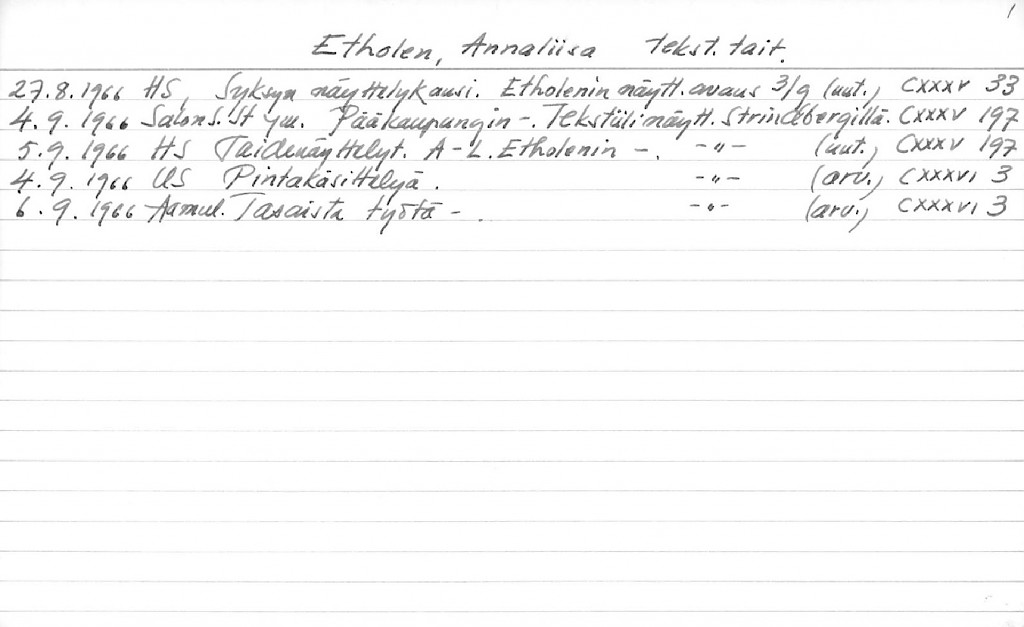 1
Etholen, Annaliisa tekst. tait.
27.8.1966 HS, Syksyn näyttelykausi. Etholenin näytt. avaus 3/9 (uut.) CXXXV 33
4.9.1966 Salons. St ym. Pääkaupungin -. Tekstiilinäytt. Strindbergillä. CXXXV 197
5.9.1966 HS Taidenäyttelyt. A-L. Etholenin -. -"- (uut.) CXXXV 197
4.9.1966 US Pintakäsittelyä. -"- (arv.) CXXXVI 3
6.9.1966 Aamul. Tasaista työtä -. -"- (arv.) CXXXVI 3